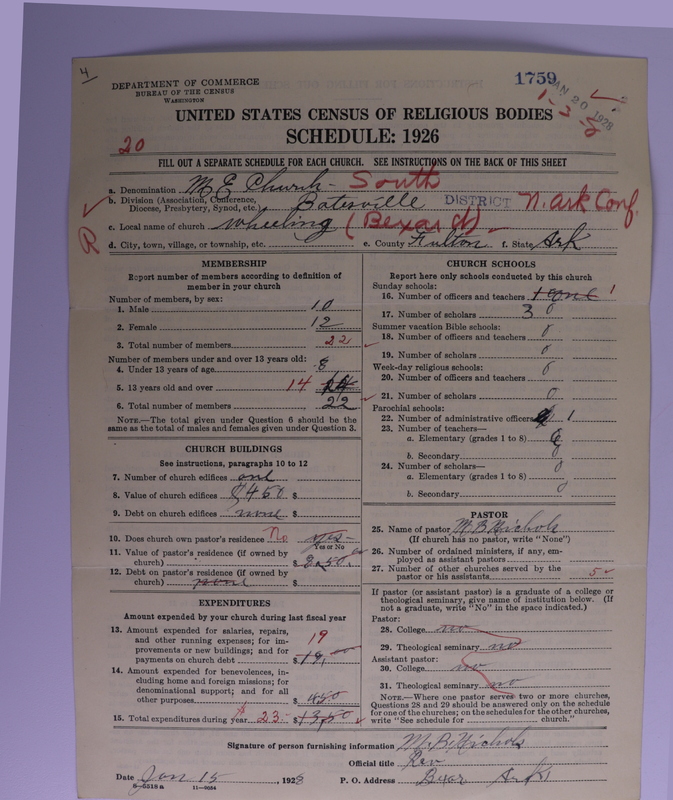 4
DEPARTMENT OF COMMERCE
BUREAU OF THE CENSUS
WASHINGTON
1759
JAN 20 1928
1-3-8
UNITED STATES CENSUS OF RELIGIOUS BODIES
SCHEDULE: 1926
20
FILL OUT A SEPARATE SCHEDULE FOR EACH CHURCH. SEE INSTRUCTIONS ON THE BACK OF THIS SHEET
a. Denomination M E Church - South
b. Division (Association, Conference, Diocese, Presbytery, Synod, etc.) Batesville DISTRICT N. Ark Conf.
R
c. Local name of church Wheeling (Bexar)
d. City, town, village, or township, etc. e. County Fulton f. State Ark
MEMBERSHIP
Report number of members according to definition of
member in your church
Number of members, by sex:
1. Male 10
2. Female 12
3. Total number of members 22
Number of members under and over 13 years old:
4. Under 13 years of age 8
5. 13 years old and over 14
6. Total number of members 22
NOTE.—The total given under Question 6 should be
same as the total of males and females given under Question 3.
CHURCH BUILDINGS
See instructions, paragraphs 10 to 12
7. Number of church edifices one
8. Value of church edifices $450 $
9. Debt on church edifices none $
10. Does church own pastor's residence No yes
Yes or No
11. Value of pastor's residence (if owned by
church) $
12. Debt on pastor's residence (if owned by
church) none $
EXPENDITURES
Amount expended by your church during last fiscal year
13. Amount expended for salaries, repairs,
and other running expenses; for im-
provements or new buildings; and for
payments on church debt $ 19
14. Amount expended for benevolences,
including home and foreign missions; for
denominational support; and for all
other purposes $ 450
15. Total expenditures during year 23- $ 13,50
CHURCH SCHOOLS
Report here only schools conducted by this church
Sunday schools:
16. Number of officers and teachers 1 one 1
17. Number of scholars 30
Summer vacation Bible schools:
18. Number of officers and teachers 0
19. Number of scholars 0
Week-day religious schools:
20. Number of officers and teachers 0
21. Number of scholars 0
Parochial schools:
22. Number of administrative officers 1
23. Number of teachers—
a. Elementary (grades 1 to 8)
b. Secondary 0
24. Number of scholars—
a. Elementary (grades 1 to 8) 0
b. Secondary 0
PASTOR
25. Name of pastor M. B. Nichols
(If church has no pastor, write "None")
26. Number of ordained ministers, if any, em-
ployed as assistant pastors
27. Number of other churches served by the
pastor or his assistants 5
If pastor (or assistant pastor) is a graduate of a college or
theological seminary, give name of institution below. (If
not a graduate, write "No" in the space indicated.)
Pastor:
28. College no
29. Theological seminary no
Assistant pastor:
30. College no
31. Theological seminary no
NOTE.—Where one pastor serves two or more churches,
Questions 28 and 29 should be answered only on the schedule
for one of the churches; on the schedules for the other churches,
write "See schedule for church."
Signature of person furnishing information M. B. Nichols
Official title Rev
Date Jan 15, 1928 P. O. Address Bexar Ark
8-5518 a 11-9684